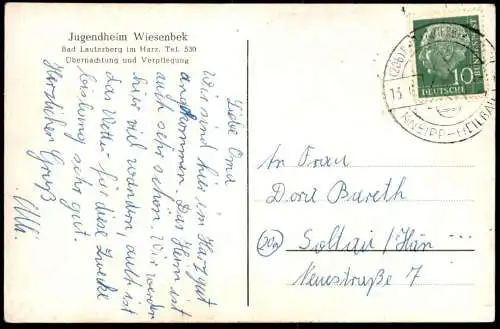 Jugendheim Wiesenbek
Bad Lauterberg im Harz. Tel. 530
Übernachtung und Verpflegung
Liebe Oma
Wir sind hier im Harz gut
angekommen. Das Heim ist
auch sehr schön. Wir werden
hier viel wandern, auch ist
das Wetter für diese Zwecke
sehr gut.
Herzlichen Gruß
10
DEUTSCHE
KNEIPP-HEILBAD
An Frau
Dora Bareth
Soltau/Han
Neuestraße 7